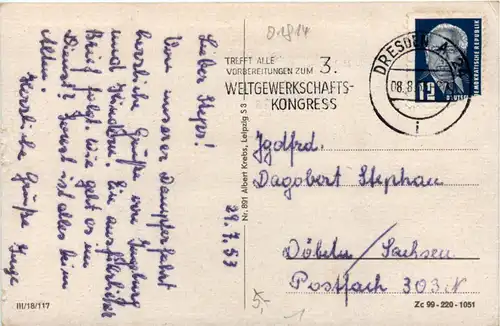 D1814
29.7.53
Lieber Stepes!
Von unserer Dampferfahrt
herzliche Grüße von Ingeburg
und Günter. Ein ausführlicher
Brief folgt. Wie geht es im
Dienst? Sonst ist alles beim
Alten!
Herzliche Grüße Inge
III/18/117
Nr. 891 Albert Krebs, Leipzig S 3
TREFFT ALLE
VORBEREITUNGEN ZUM 3.
WELTGEWERKSCHAFTS-
KONGRESS
DRESDEN A 24
08.8.
i
DEMOKRATISCHE REPUBLIK
12
DEUTSCHE
Jgdfrd.
Dagobert Stephan
Döbeln / Sachsen
Postfach 303 N
5,-
1
Zc 99-220-1051